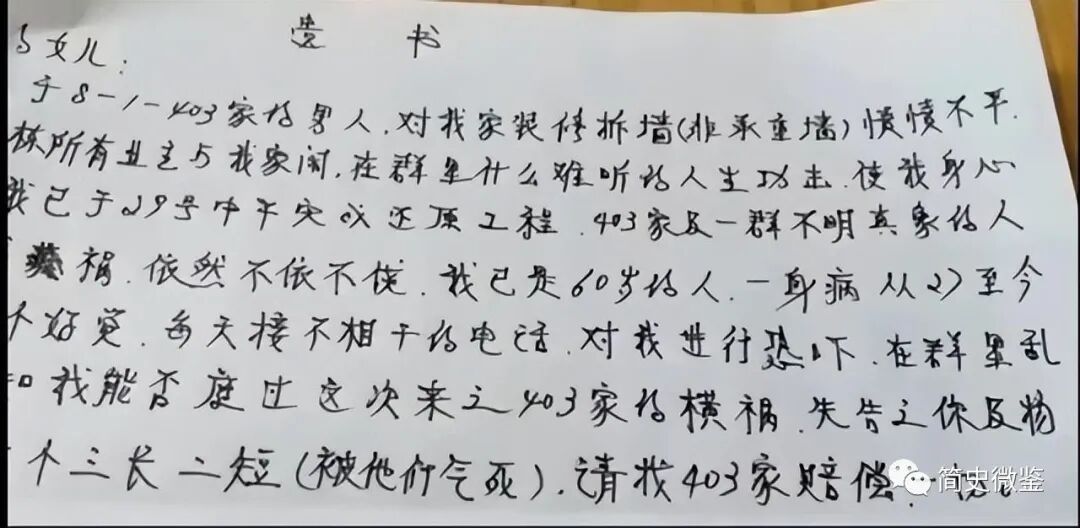 书
女儿：
于8-1-403家的男人,对我家装修拆墙(非承重墙)愤愤不平.
栋所有业主与我家闹,在群里什么难听的人生功击.使我身心
我已于29号中午完成还原工程.403家及一群不明真象的人
祸.依然不依不饶.我已是60岁的人.一身病从27至今
个好觉.每天接不相干的电话.对我进行恐吓.在群里乱
我能否度过这次来之403家的横祸.先告之你及物
个三长二短(被他们气死).请找403家赔偿.
简史微鉴